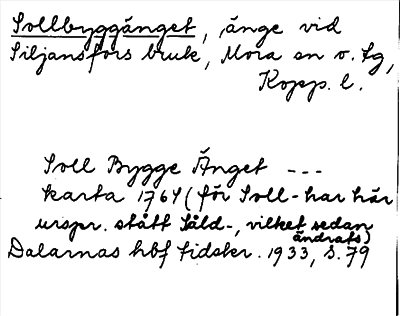 Sollbyggänget, änge vid
Siljansfors bruk, Mora sn o. tg,
Kopp. l.
Soll Bygge Änget ---
karta 1764 (för Soll- har här
urspr. stått Såld-, vilket sedan
ändrats)
Dalarnas hbf tidskr. 1933, s. 79